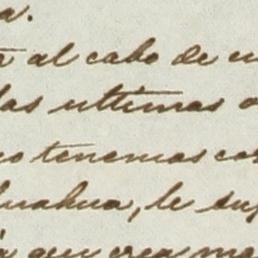 a.
al cabo de
las ultimas
no tenemos
huahua, le
que crea me